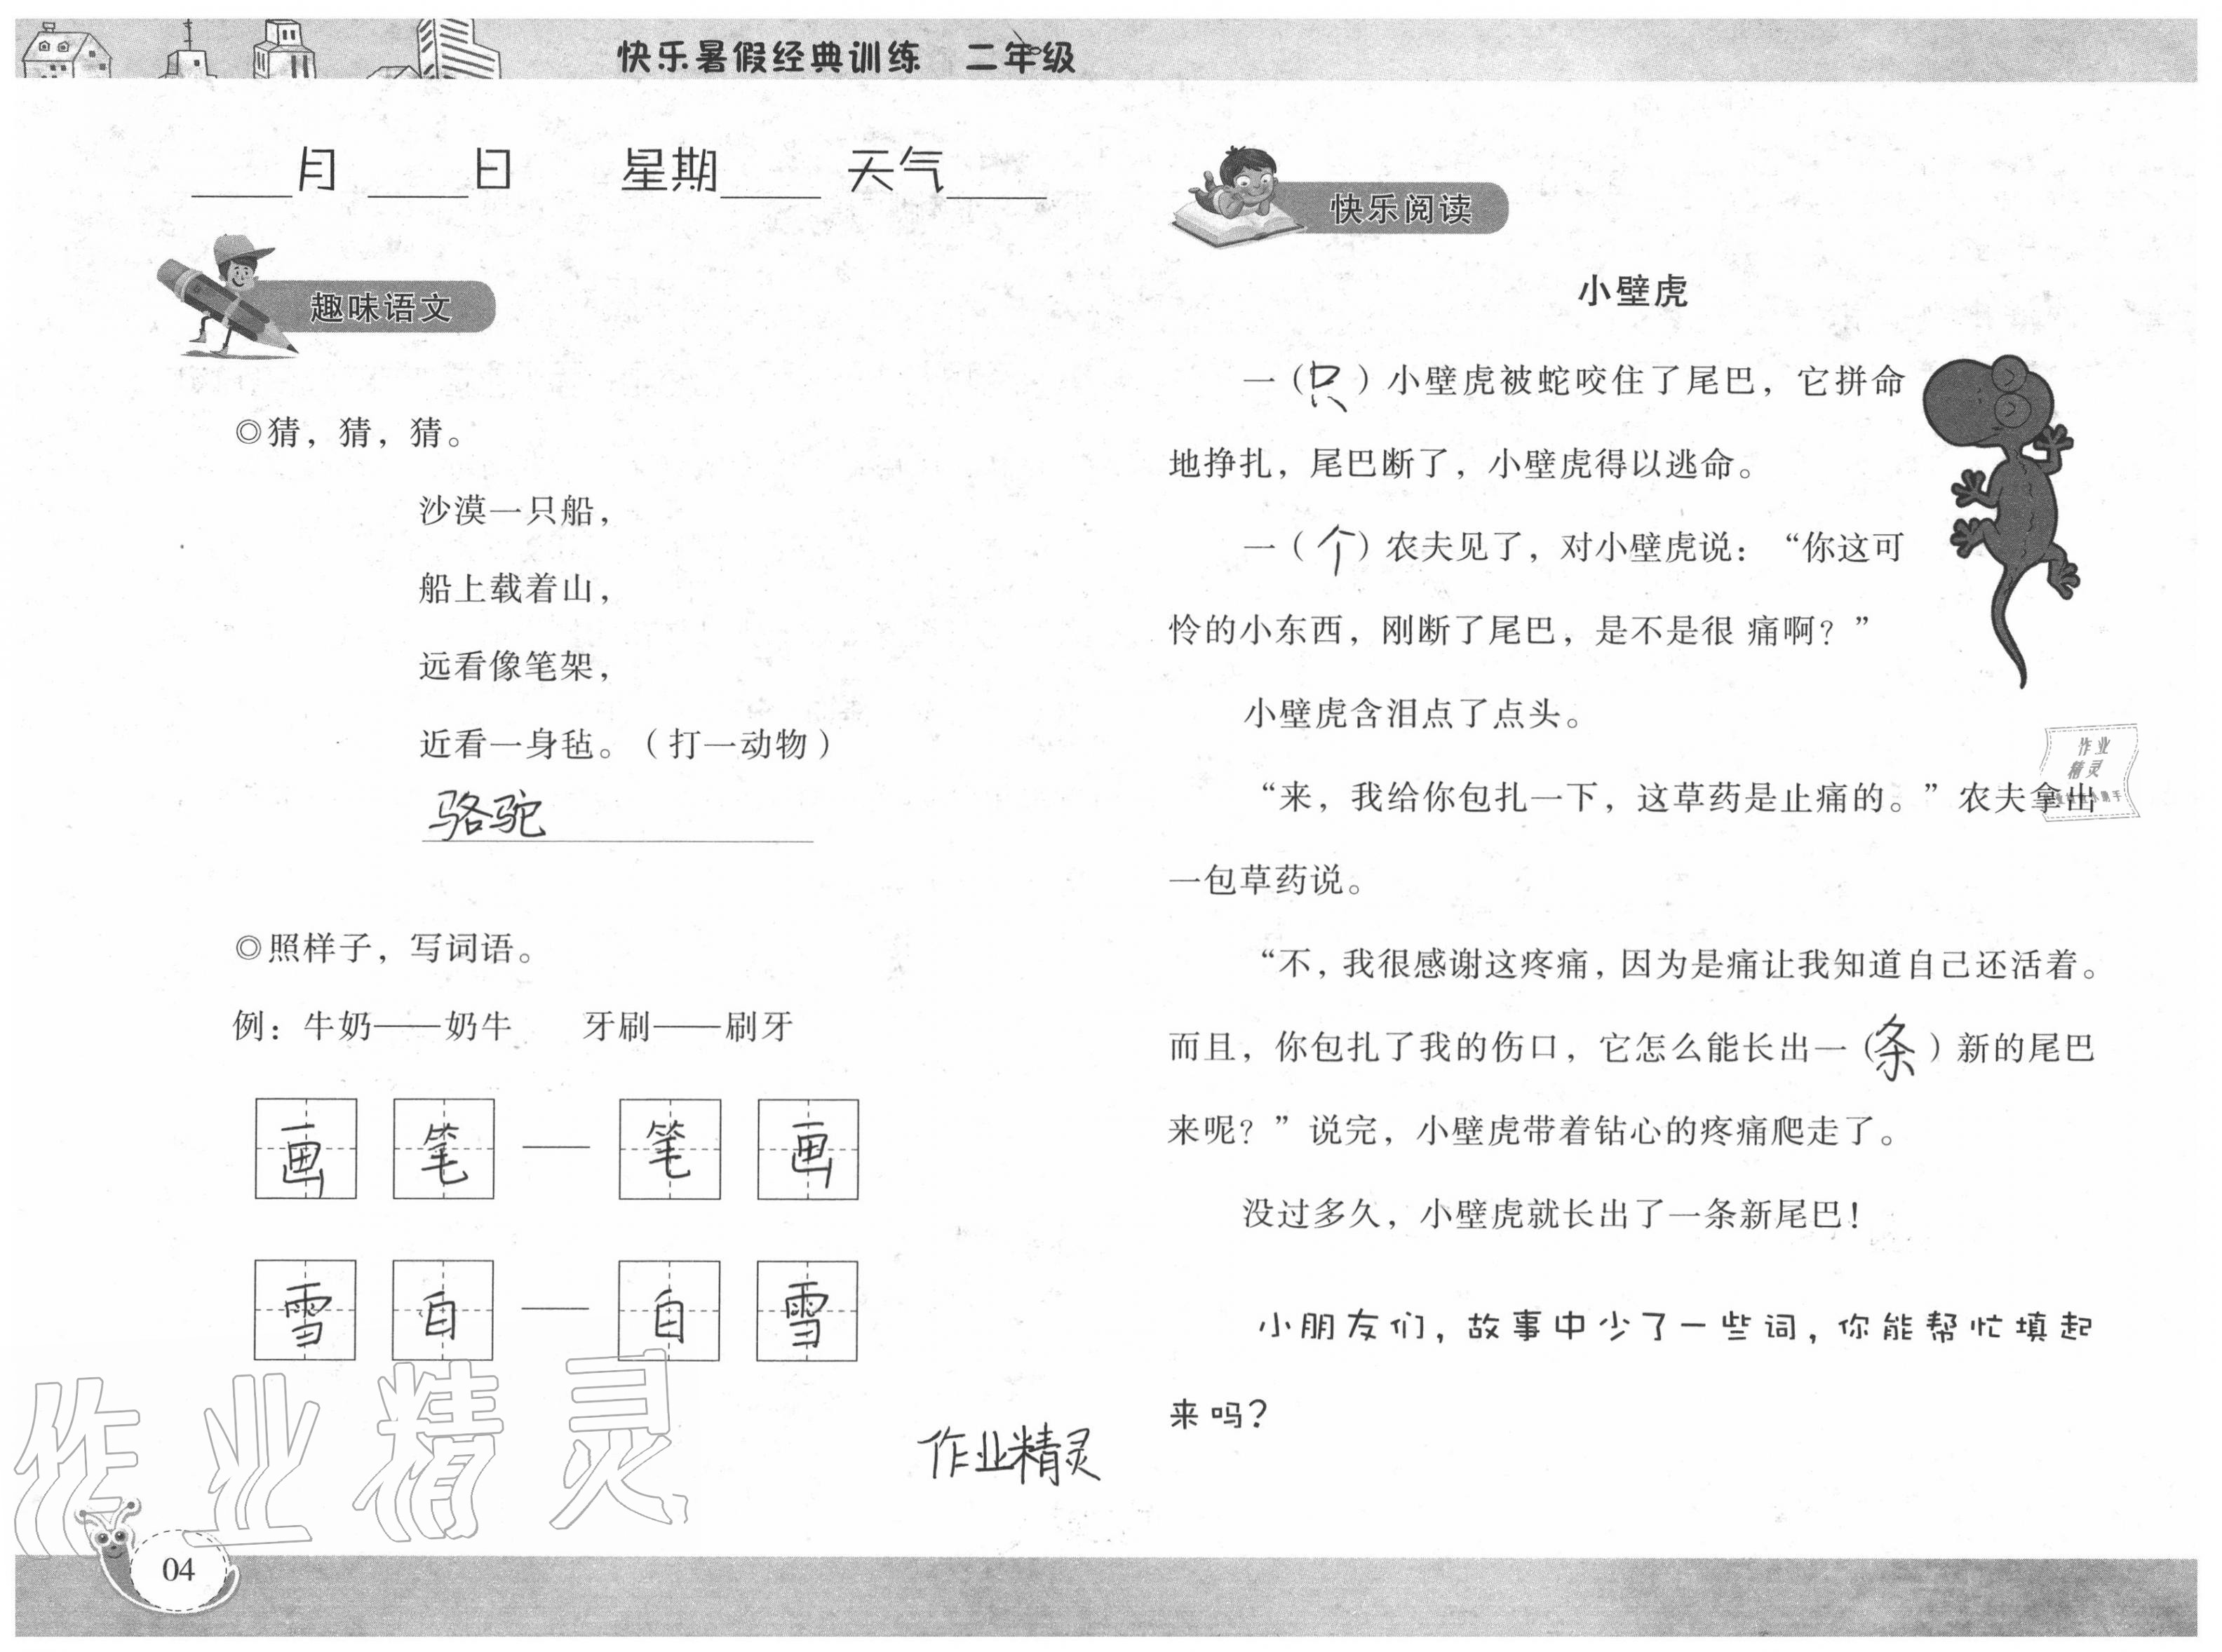 快乐暑假经典训练 二年级
____月 ____日 星期____ 天气____
趣味语文
◎猜，猜，猜。
沙漠一只船，
船上载着山，
远看像笔架，
近看一身毡。（打一动物）
骆驼
◎照样子，写词语。
例：牛奶——奶牛 牙刷——刷牙
画 笔 —— 笔 画
雪 白 —— 白 雪
作业精灵
作业精灵
04
快乐阅读
小壁虎
一（只）小壁虎被蛇咬住了尾巴，它拼命
地挣扎，尾巴断了，小壁虎得以逃命。
一（个）农夫见了，对小壁虎说：“你这可
怜的小东西，刚断了尾巴，是不是很 痛啊？”
小壁虎含泪点了点头。
作业
精灵
“来，我给你包扎一下，这草药是止痛的。”农夫拿出
一包草药说。
“不，我很感谢这疼痛，因为是痛让我知道自己还活着。
而且，你包扎了我的伤口，它怎么能长出一（条）新的尾巴
来呢？”说完，小壁虎带着钻心的疼痛爬走了。
没过多久，小壁虎就长出了一条新尾巴！
小朋友们，故事中少了一些词，你能帮忙填起
来吗？